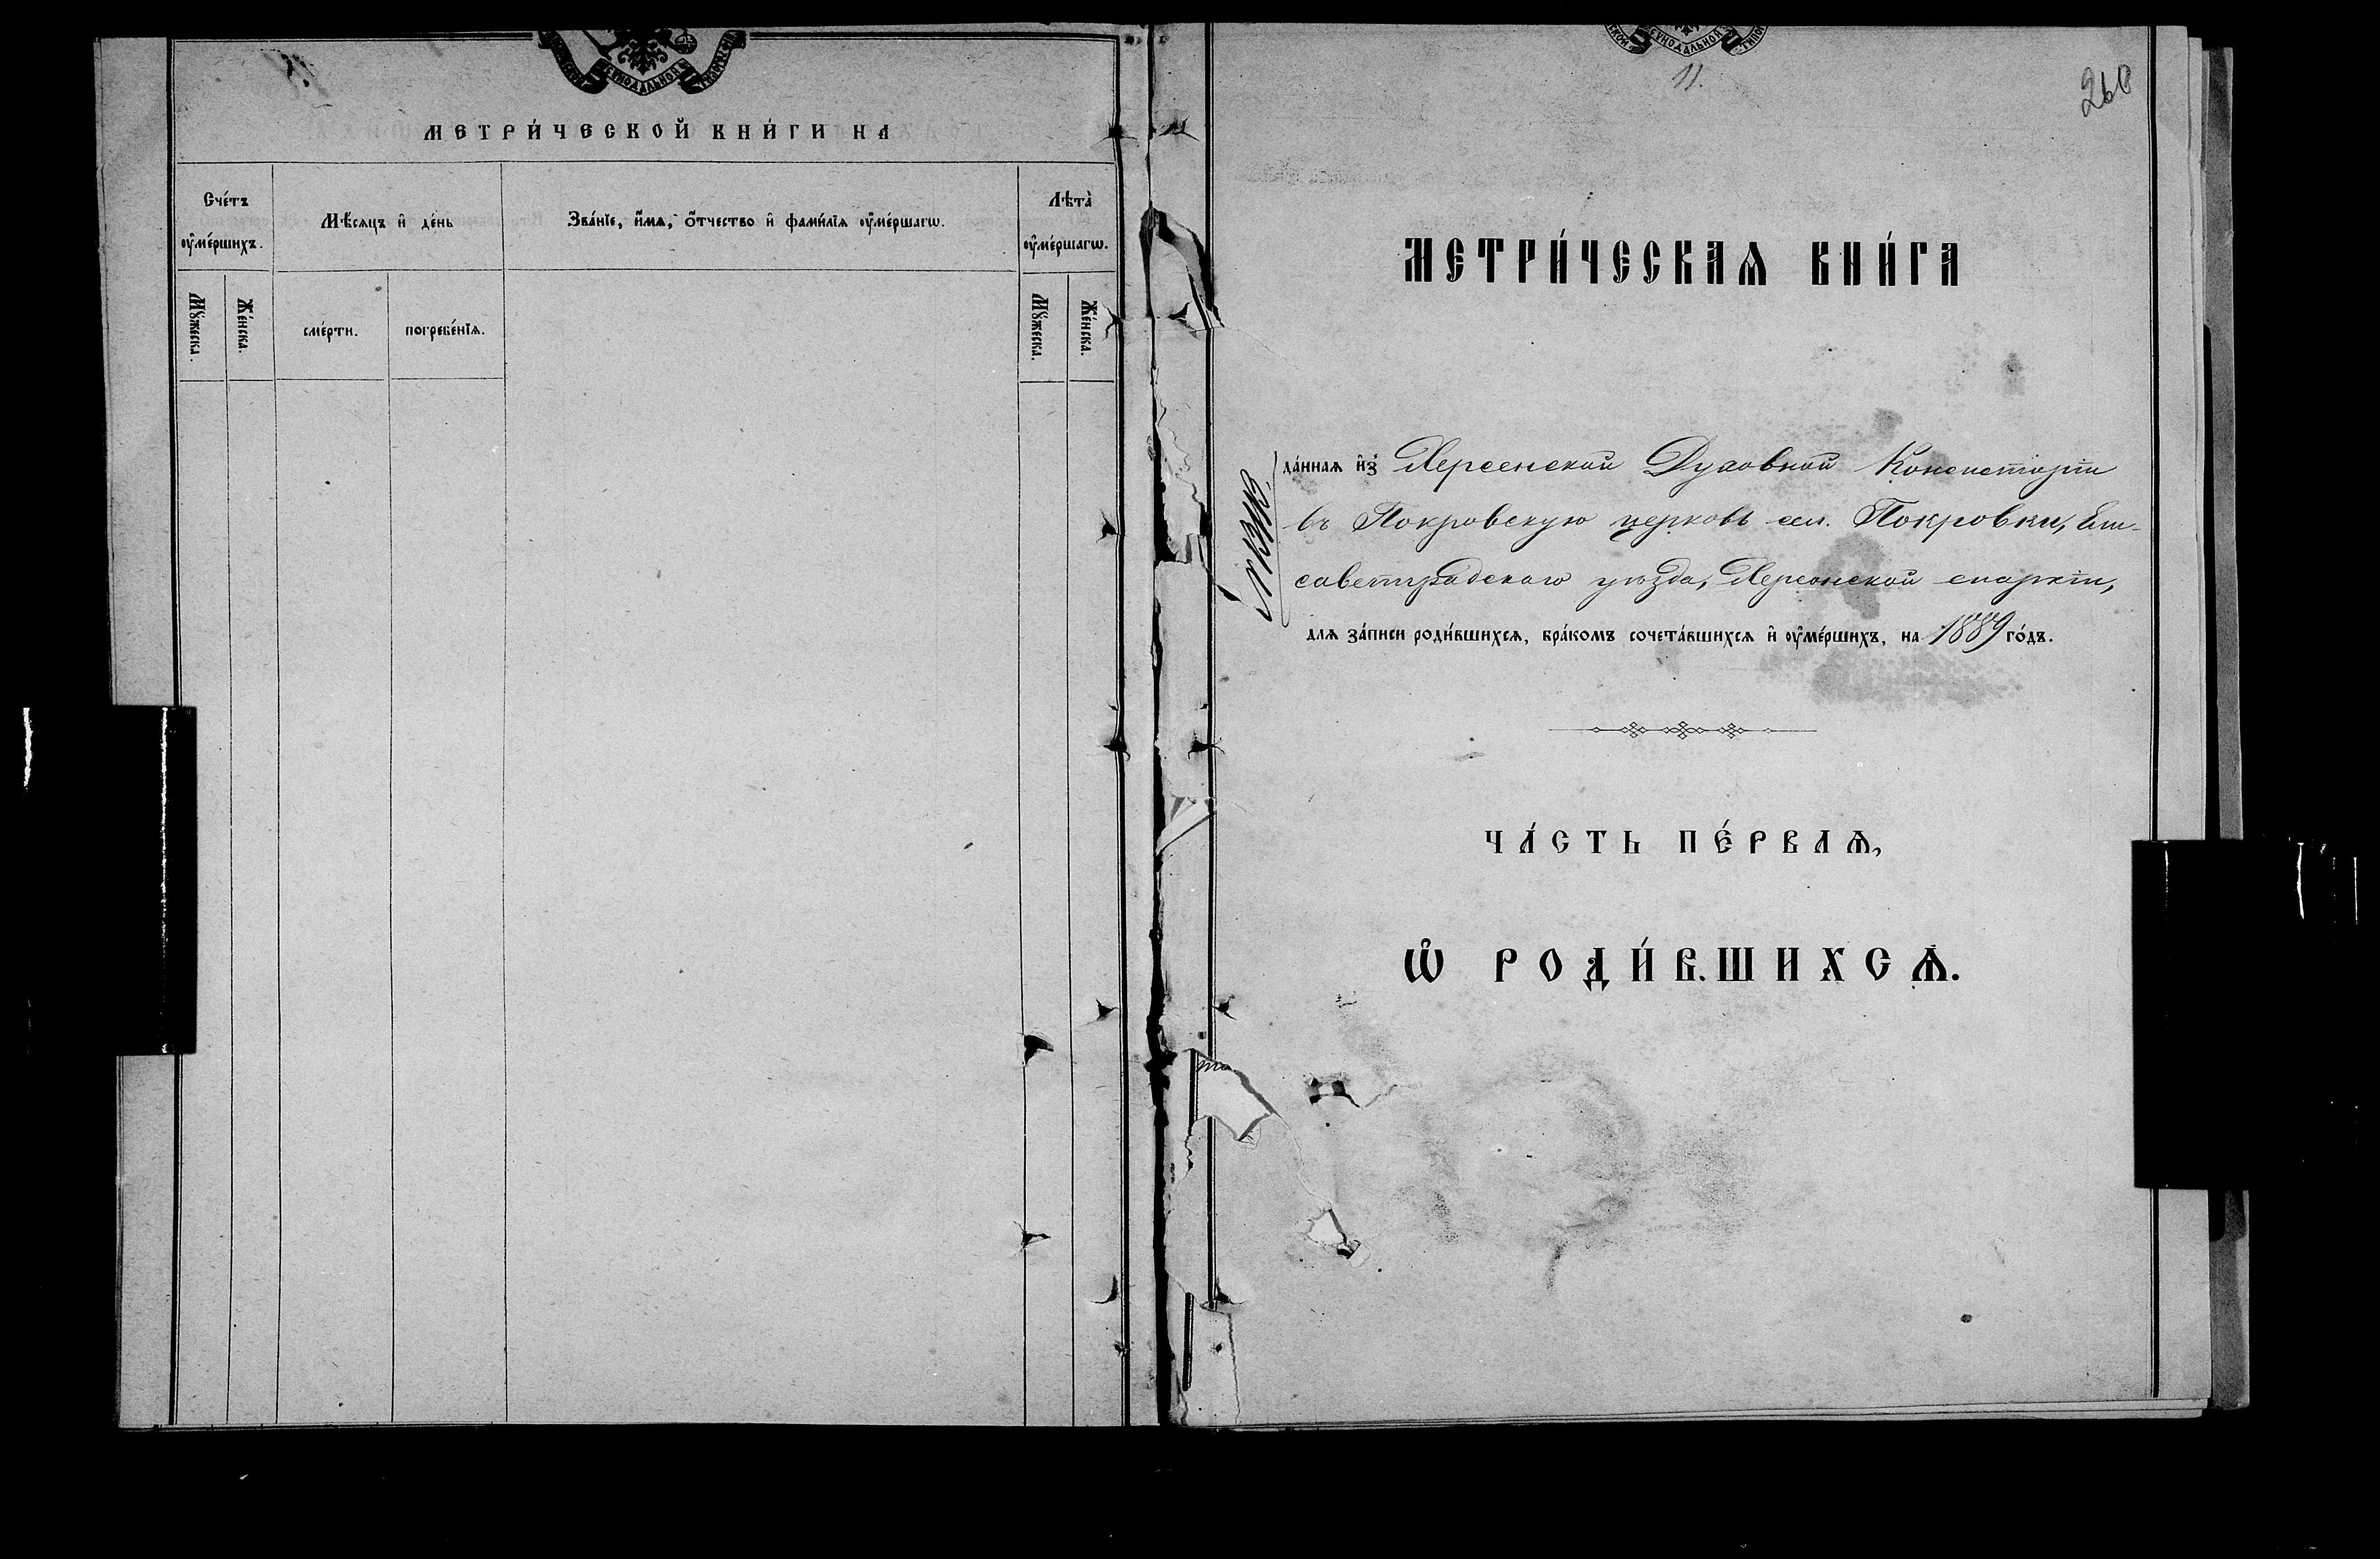 СѴНОДАЛЬНОЙ
МЕТРИ́ЧЕСКОЙ КНИ́ГИ НА
Сче́тъ
ᲂу҆ме́ршихъ.
Мѣ́сяцъ и҆ де́нь
Зва́нїе, и҆́мѧ, ѻ҆́тчество и҆ фами́лїѧ ᲂу҆ме́ршагѡ.
Лѣта̀
ᲂу҆ме́ршагѡ.
Мꙋ́жеска.
Же́нска.
сме́рти.
погребе́нїѧ.
Мꙋ́жеска.
Же́нска.
СѴНОДАЛЬНОЙ
11.
260
МЕТРИ́ЧЕСКАѦ КНИ́ГА
да́ннаѧ и҆з̾ Херсонской Духовной Консисторіи
въ Покровскую церковь сел. Покровки, Ели-
саветградскаго уѣзда, Херсонской епархіи,
длѧ за́писи роди́вшихсѧ, бра́комъ сочета́вшихсѧ и҆ ᲂу҆ме́ршихъ, на 1889 го́дъ.
ЧА́СТЬ ПЕ́РВАѦ,
Ѡ҆ РОДИ́ВШИХСѦ.